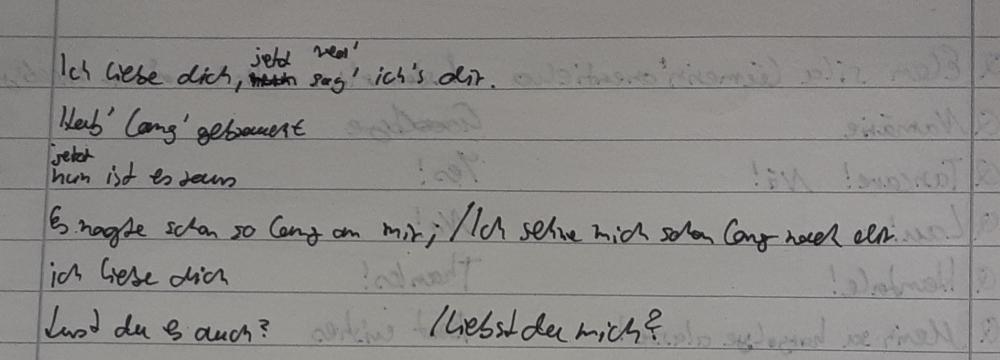 jetzt
Ich liebe dich, sag' ich's dir.
Hab' lang' gebraucht
jetzt
nun ist es raus
Es nagte schon so lang an mir, / Ich sehne mich schon lang nach dir
ich liebe dich
tust du es auch? / liebst du mich?
Goodbye
Yes!
Thanks!